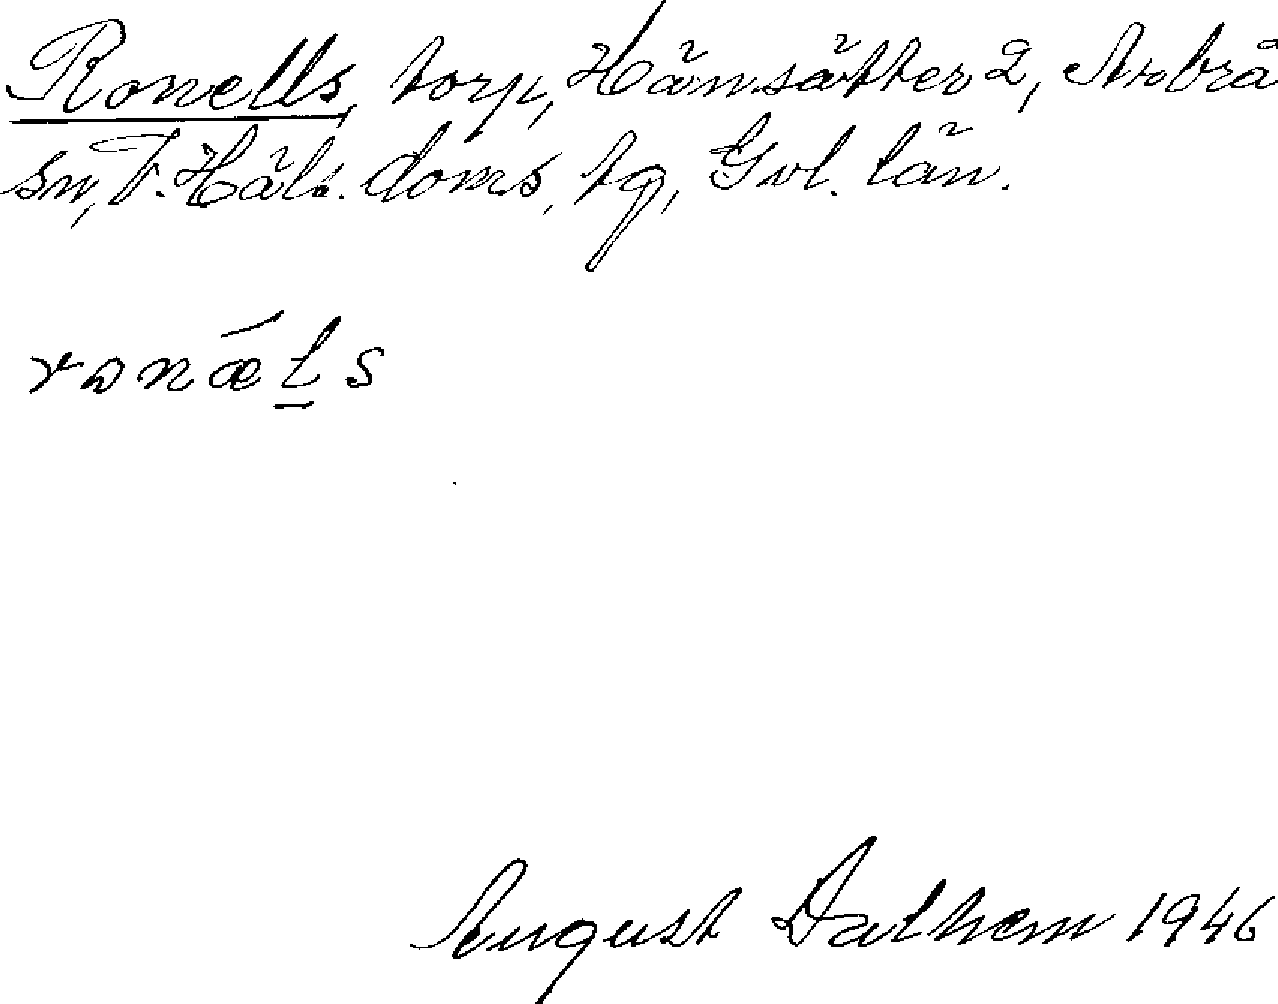 Ronells, torp, Hänsätter 2, Arbrå
sn, V. Häls. doms. tg, Gvl. län.
rɷnǽl̲s
August Dalhem 1946